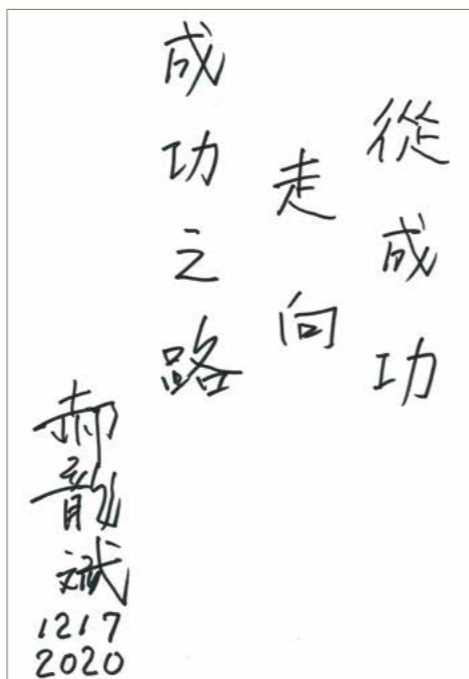 從成功
走向
成功之路
郝龍斌
1217
2020